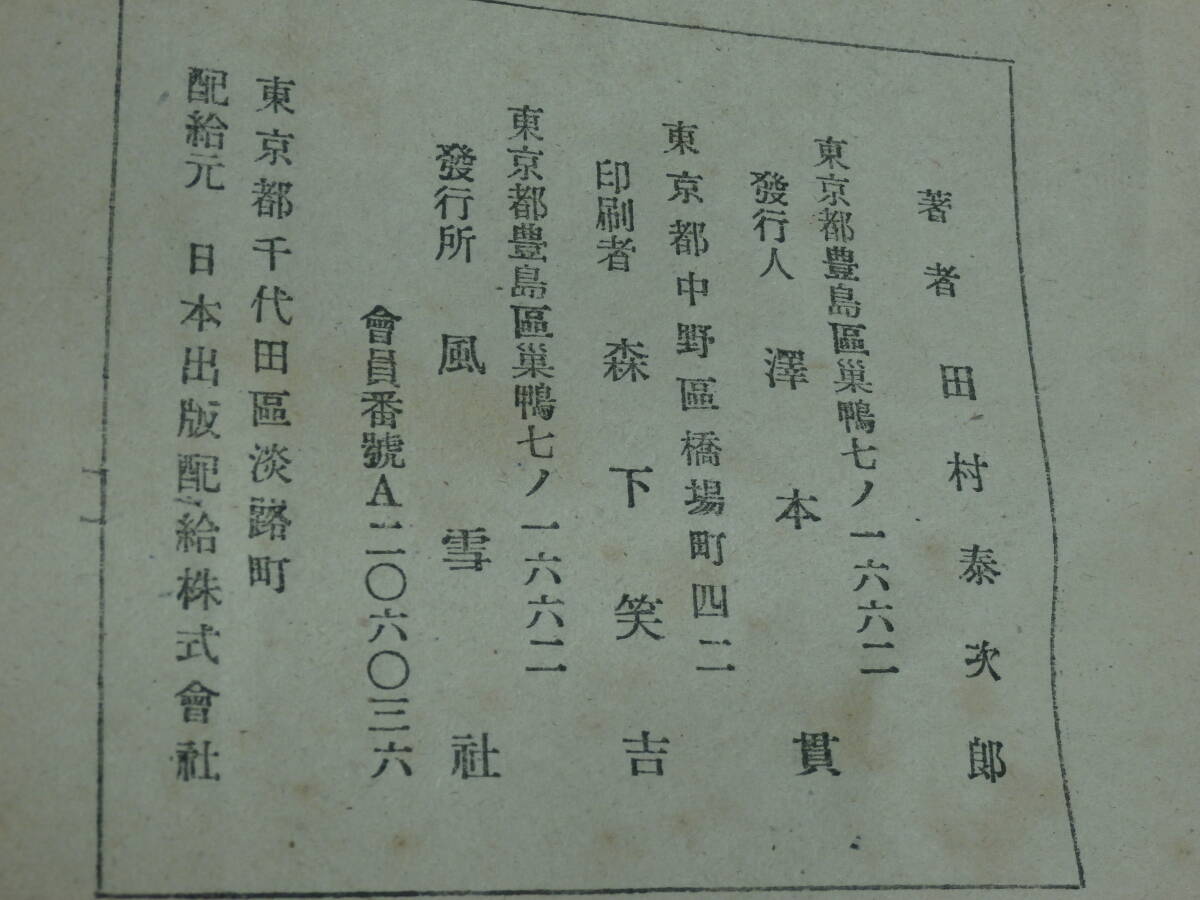 著者 田村泰次郎
東京都豊島區巢鴨七ノ一六六二
發行人 澤本貫
東京都中野區橋場町四二
印刷者 森下笑吉
東京都豊島區巢鴨七ノ一六六二
發行所 風雪社
會員番號A二〇六〇三六
東京都千代田區淡路町
配給元 日本出版配給株式會社